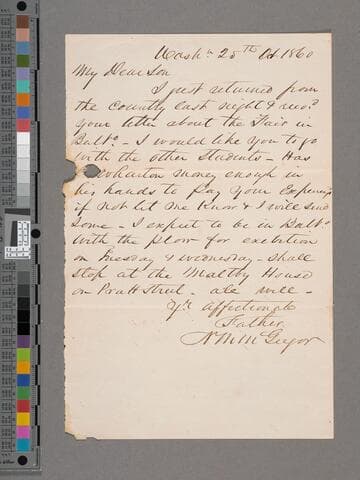 Washn 25th Oct 1860
My Dear Son
I just returned from
the Country last night & recd
your letter about the Fair in
Balto - I would like you to go
with the other Students - Has
Wharton money enough in
his hands to pay your Expenses
if not let me Know & I will send
Some - I expect to be in Balto
With the plow for exibition
on Tuesday & Wednesday - shall
stop at the Maltby House
on Pratt Street - all well -
Yr. affectionate
Father
McGregor